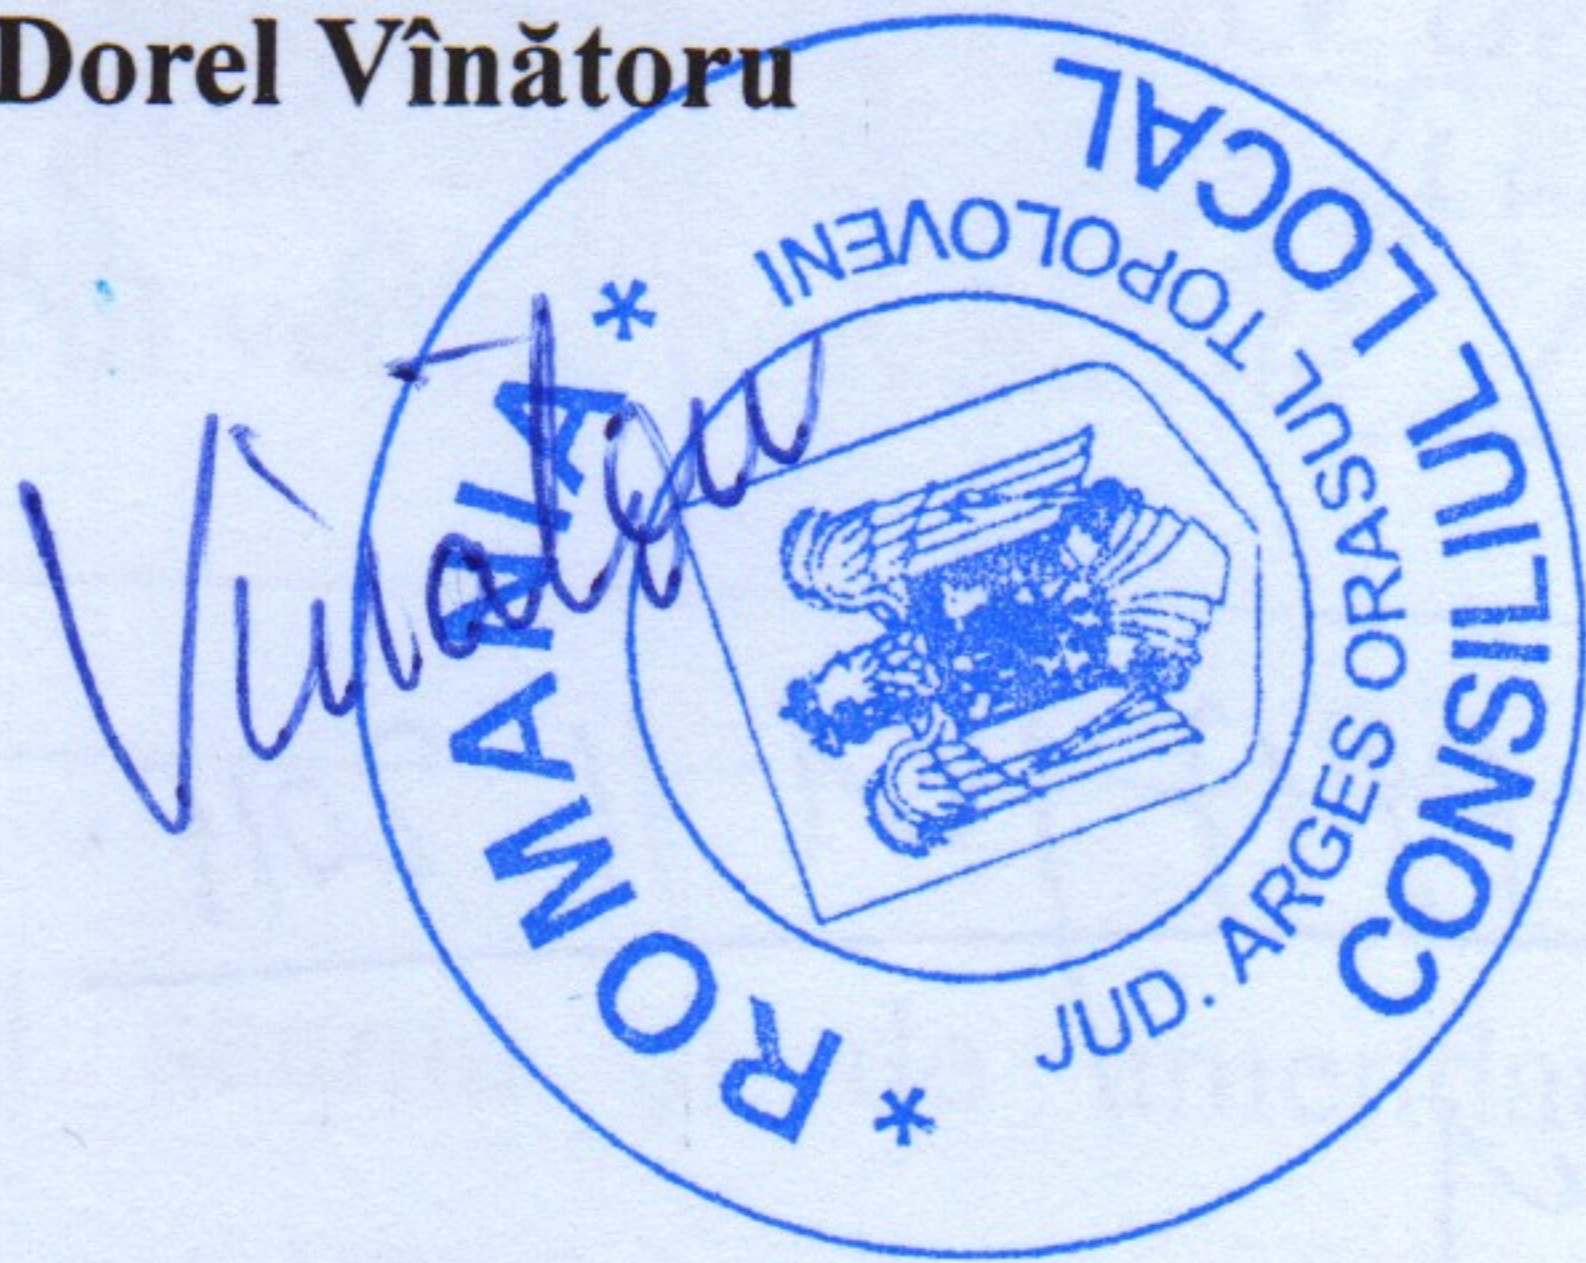 Dorel Vînătoru
Vînătoru
* ROMANIA *
CONSILIUL LOCAL
JUD. ARGES ORASUL TOPOLOVENI